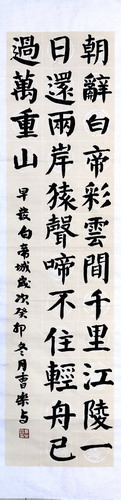 朝辭白帝彩雲間千里江陵一
日還兩岸猿聲啼不住輕舟已
過萬重山
早發白帝城歲次癸卯冬月曹樂